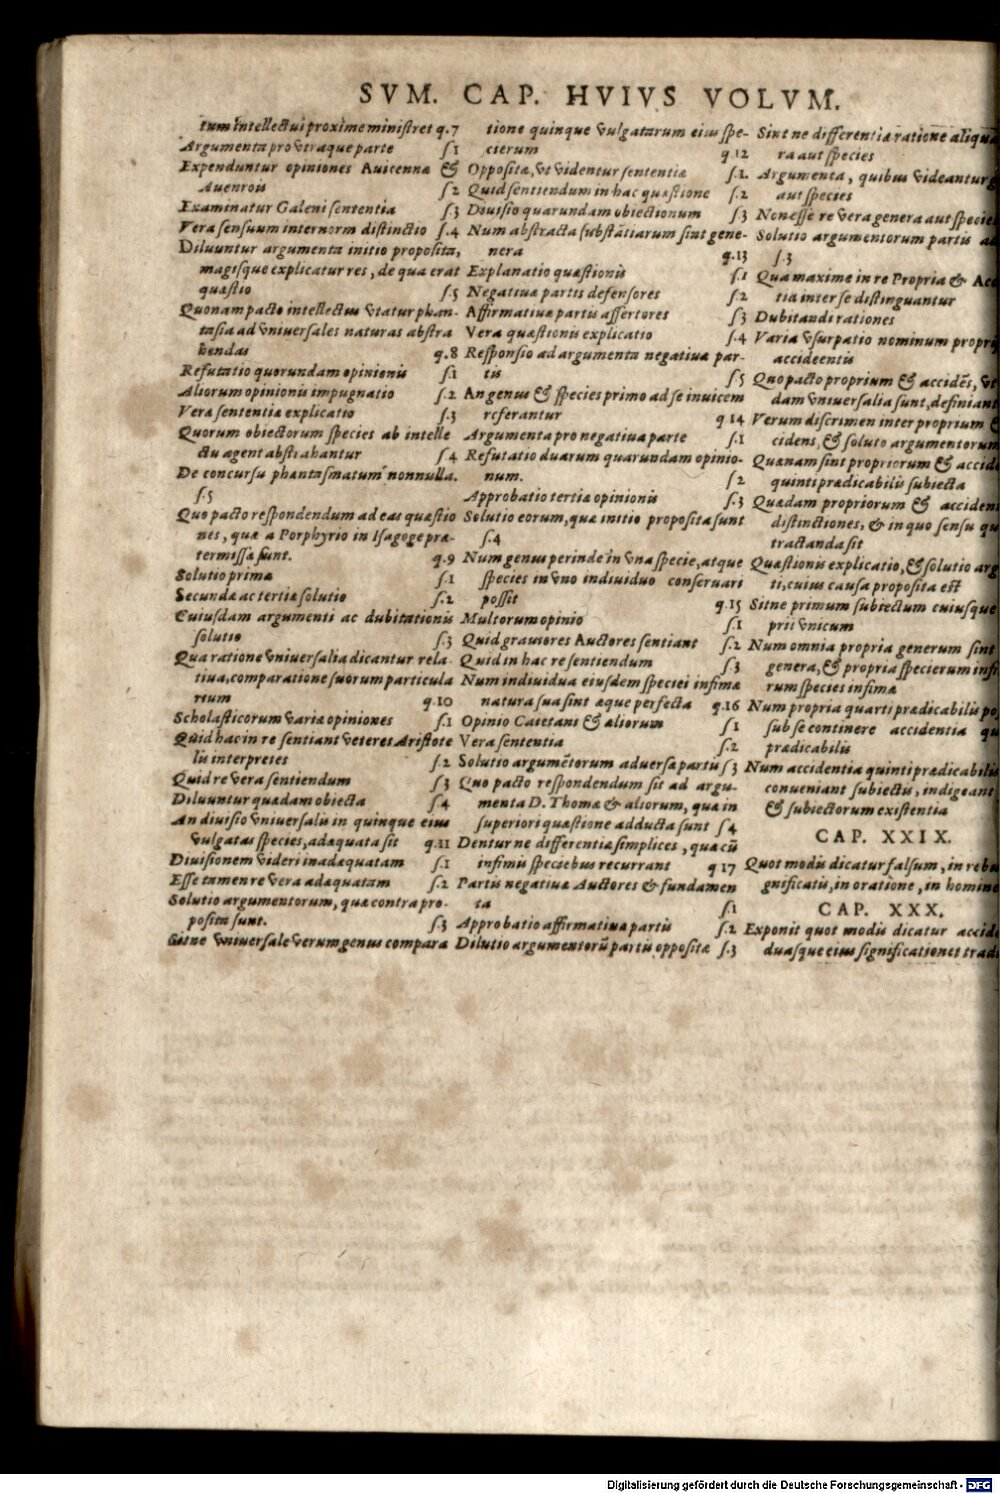 SVM. CAP. HVIVS VOLVM.
tum intellectui proxime ministret q.7
Argumenta pro vtraque parte ſ.1
Expenduntur opiniones Auicennæ &
Auenrois ſ.2
Examinatur Galeni ſententia ſ.3
Vera ſenſuum internorm diſtinctio ſ.4
Diluuntur argumenta initio propoſita,
magiſque explicatur res, de qua erat
quæſtio ſ.5
Quonam pacto intellectus vtatur phan-
taſia ad vniuerſales naturas abſtra
hendas q.8
Refutatio quorundam opinionis ſ.1
Aliorum opinionis impugnatio ſ.2
Vera ſententia explicatio ſ.3
Quorum obiectorum ſpecies ab intelle
ctu agent abſtrahantur ſ.4
De concurſu phantaſmatum nonnulla.
ſ.5
Quo pacto reſpondendum ad eas quæſtio
nes, quæ a Porphyrio in Iſagoge præ-
termiſſæ ſunt. q.9
Solutio prima ſ.1
Secundæ ac tertiæ ſolutio ſ.2
Cuiuſdam argumenti ac dubitationis
ſolutio ſ.3
Qua ratione vniuerſalia dicantur rela-
tiua, comparatione ſuorum particula
rium q.10
Scholaſticorum variæ opiniones ſ.1
Quid hac in re ſentiant veteres Ariſtote
lis interpretes ſ.2
Quid re vera ſentiendum ſ.3
Diluuntur quædam obiecta ſ.4
An diuiſio vniuerſalis in quinque eius
vulgatas ſpecies, adæquata ſit q.11
Diuiſionem videri inadæquatam ſ.1
Eſſe tamen re vera adæquatam ſ.2
Solutio argumentorum, quæ contra pro-
poſita ſunt. ſ.3
Sitne vniuerſale verum genus compara
tione quinque vulgatarum eius ſpe-
cierum q.12
Oppoſitæ, vt videntur ſententiæ ſ.1.
Quid ſentiendum in hac quæſtione ſ.2
Diuiſio quarundam obiectionum ſ.3
Num abſtracta ſubſtātiarum ſint gene-
nera q.13
Explanatio quæſtionis ſ.1
Negatiuæ partis defenſores ſ.2
Affirmatiuæ partis aſſertores ſ.3
Vera quæſtionis explicatio ſ.4
Reſponſio ad argumenta negatiuæ par-
tis ſ.5
An genus & ſpecies primo ad ſe inuicem
referantur q.14
Argumenta pro negatiua parte ſ.1
Refutatio duarum quarundam opinio-
num. ſ.2
Approbatio tertiæ opinionis ſ.3
Solutio eorum, quæ initio propoſita ſunt
ſ.4
Num genus perinde in vna ſpecie, atque
ſpecies in vno indiuiduo conſeruari
poſſit q.15
Multorum opinio ſ.1
Quid grauiores Auctores ſentiant ſ.2
Quid in hac re ſentiendum ſ.3
Num indiuidua eiuſdem ſpeciei infimæ
natura ſua ſint æque perfecta q.16
Opinio Caietani & aliorum ſ.1
Vera ſententia ſ.2
Solutio argumētorum aduerſæ partis ſ.3
Quo pacto reſpondendum ſit ad argu-
menta D. Thomæ & aliorum, quæ in
ſuperiori quæſtione adducta ſunt ſ.4
Dentur ne differentiæ ſimplices, quæ cū
infimis ſpeciebus recurrant q.17
Partis negatiuæ Auctores & fundamen
ta ſ.1
Approbatio affirmatiua partis ſ.2
Dilutio argumentorū partis oppoſitæ ſ.3
Sint ne differentiæ ratione aliqua
ra aut ſpecies
Argumenta, quibus videantur g
aut ſpecies
Non eſſe re vera genera aut ſpecie
Solutio argumentorum partis ad
ſ.3
Quamaxime in re Propria & Acc
tia inter ſe diſtinguantur
Dubitandi rationes
Varia vſurpatio nominum propri
accideentis
Quo pacto proprium & accidēs, vt
dam vniuerſalia ſunt, definiant
Verum diſcrimen inter proprium &
cidens, & ſoluto argumentorum
Quænam ſint propriorum & accid
quinti prædicabilis ſubiecta
Quædam propriorum & acciden
diſtinctiones, & in quo ſenſu qu
tractanda ſit
Quæſtionis explicatio, & ſolutio arg
ti, cuius cauſa propoſita eſt
Sitne primum ſubiectum cuiuſque
prii vnicum
Num omnia propria generum ſint
genera, & propria ſpecierum infi
rum ſpecies infimæ
Num propria quarti prædicabilis po
ſub ſe continere accidentia qu
prædicabilis
Num accidentia quinti prædicabilis
conueniant ſubiectis, indigeant
& ſubiectorum exiſtentia
CAP. XXIX.
Quot modis dicatur falſum, in reb
gnificatis, in oratione, in homine
CAP. XXX.
Exponit quot modis dicatur accid
duaſque eius ſignificationes tradi
Digitalisierung gefördert durch die Deutsche Forschungsgemeinschaft - DFG